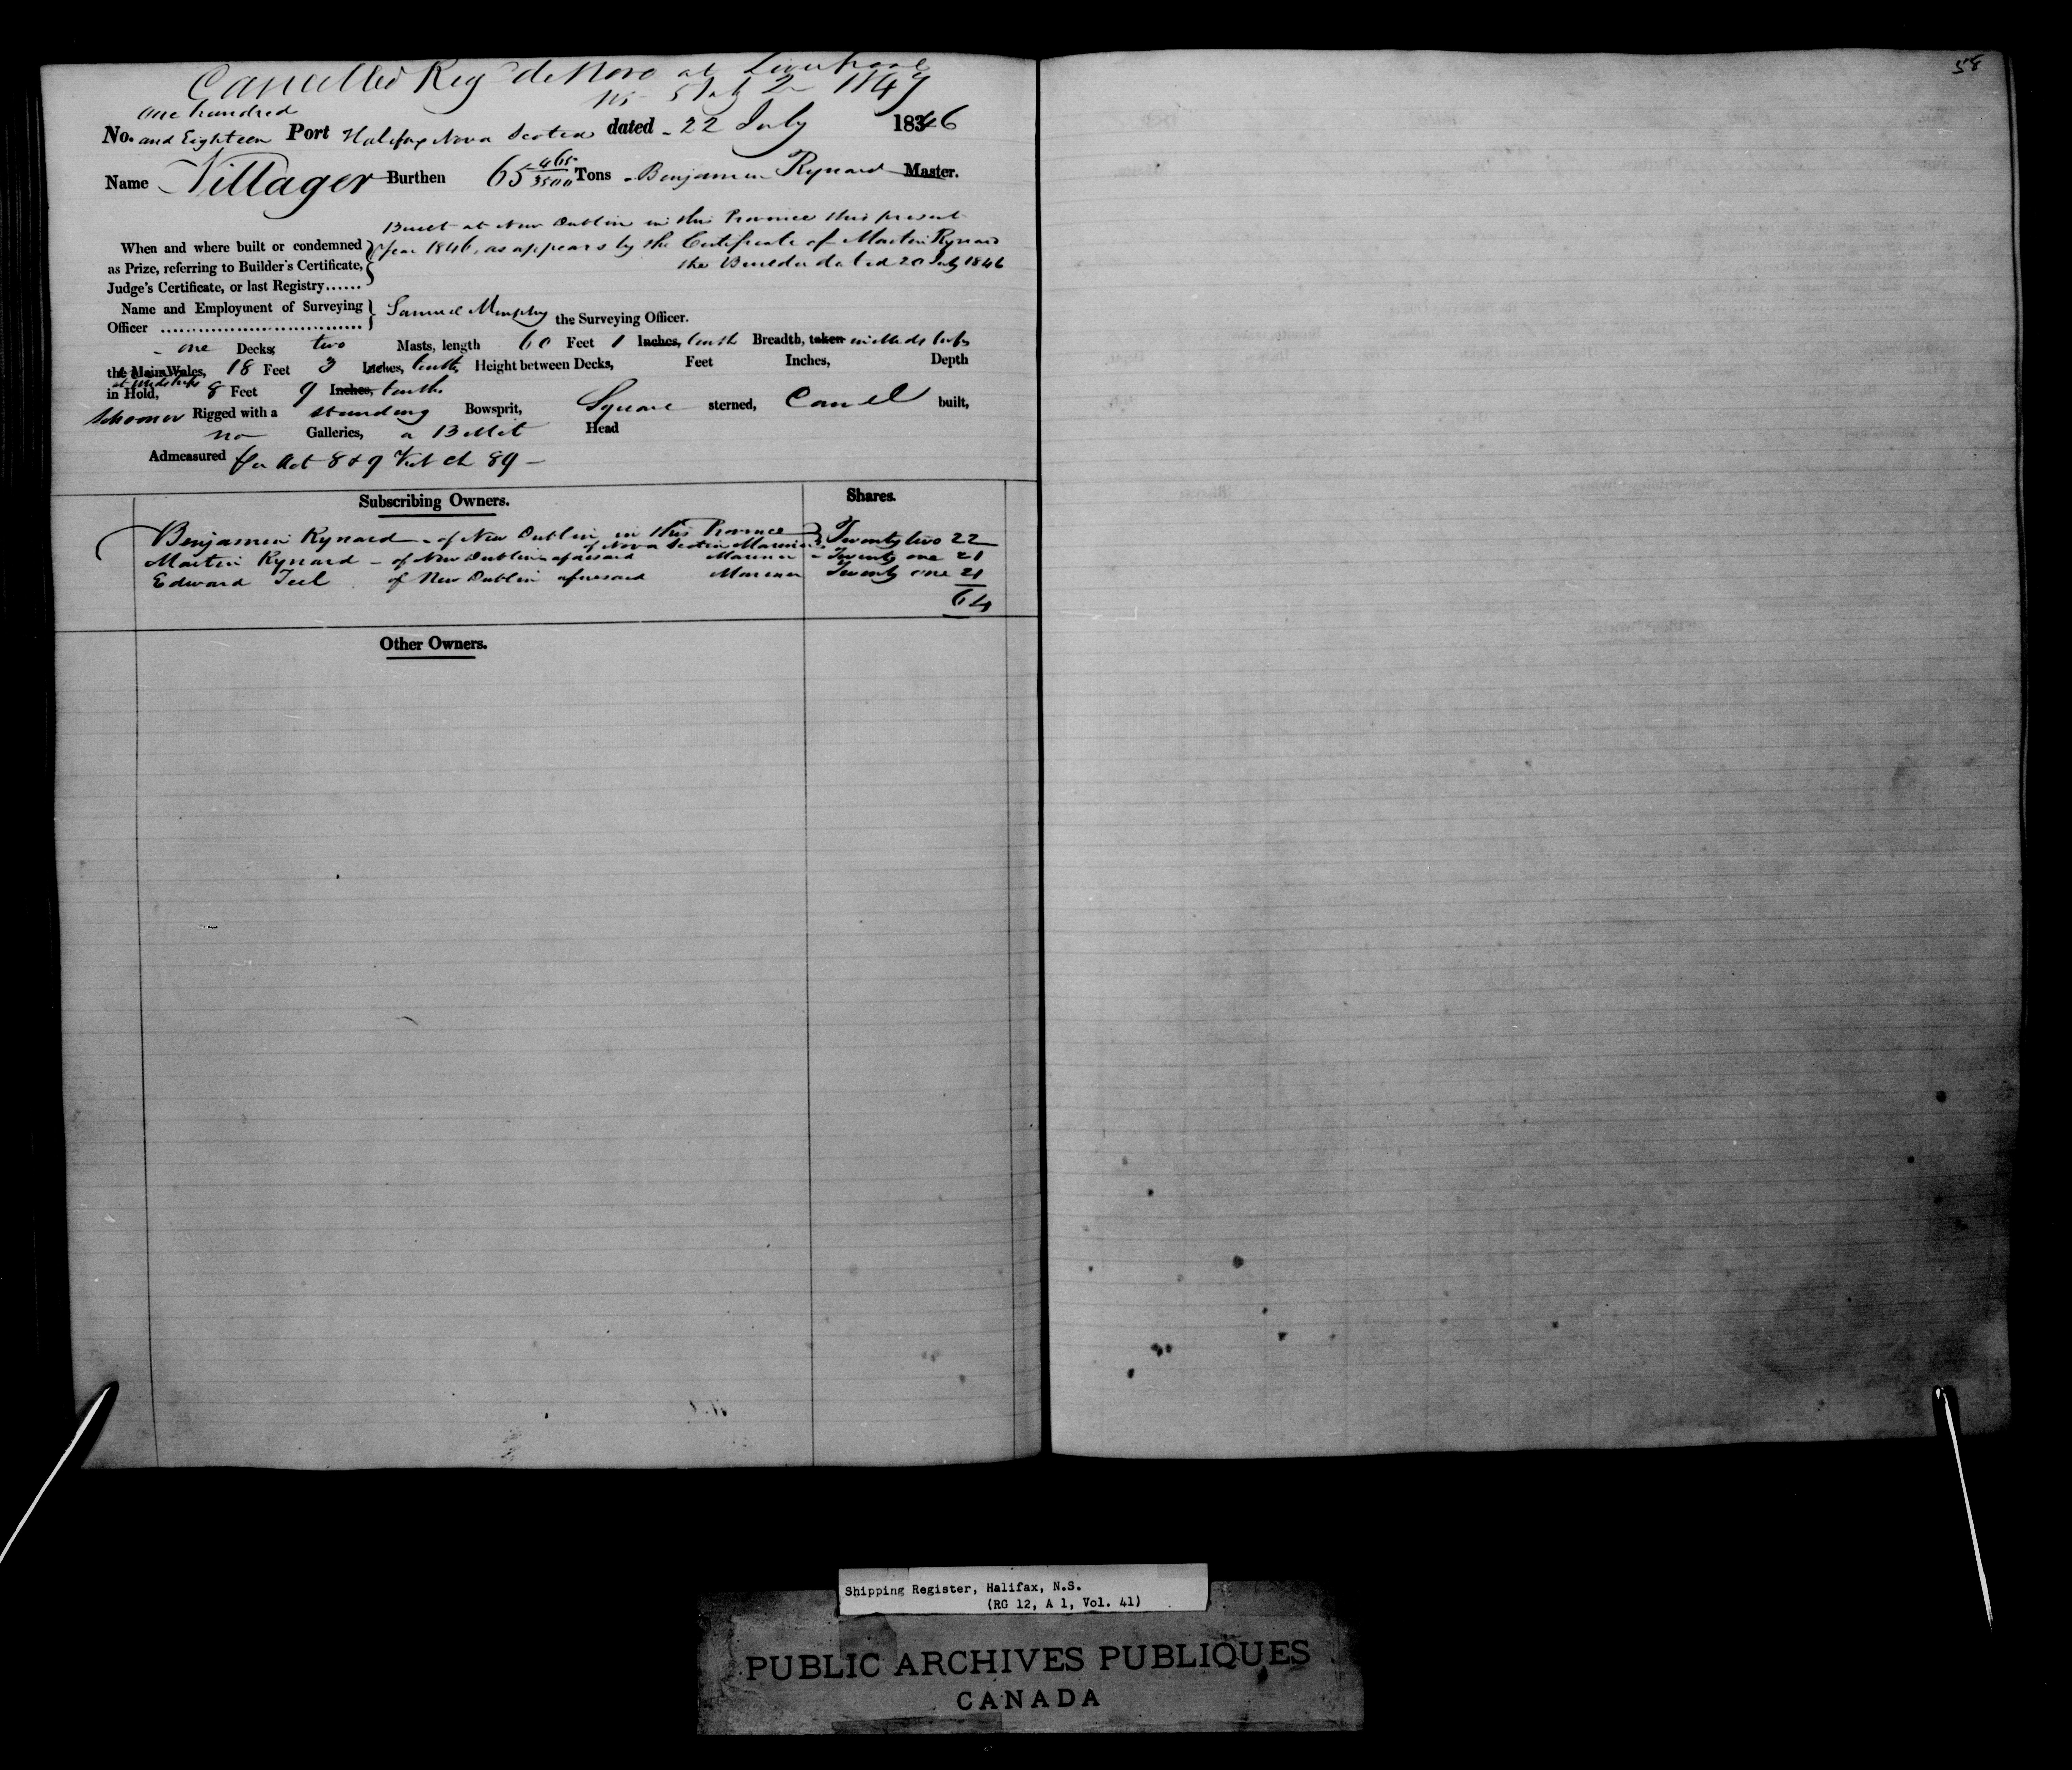 Cancelled Reg de Novo at Liverpool
No 5 July 2 1847
one hundred
No. and Eighteen Port Halifax Nova Scotia dated 22 July 1846
Name Villager Burthen 65 465/3500 Tons Benjamin Rynard Master.
Built at New Dublin in this Province this present
When and where built or condemned year 1846, as appears by the Certificate of Martin Rynard
as Prize, referring to Builder's Certificate, the Builder dated 20 July 1846
Judge's Certificate, or last Registry......
Name and Employment of Surveying
Officer Samuel Murphy the Surveying Officer.
one Decks, two Masts, length 60 Feet 1 Inches, tenth Breadth, taken
the Main Wales, 18 Feet 3 Inches, tenths Height between Decks, Feet Inches, Depth
at Midships
in Hold, 8 Feet 9 Inches, tenths
Schooner Rigged with a standing Bowsprit, Square sterned, Carvel built,
no Galleries, a Billet Head
Admeasured per Act 8 & 9 Vict ch 89
Subscribing Owners. Shares.
Benjamin Rynard of New Dublin in this Province Twenty two 22
of Nova Scotia Mariner
Martin Rynard of New Dublin aforesaid Mariner Twenty one 21
Edward Teel of New Dublin aforesaid Mariner Twenty one 21
64
Other Owners.
58
Shipping Register, Halifax, N.S.
(RG 12, A 1, Vol. 41)
PUBLIC ARCHIVES PUBLIQUES
CANADA